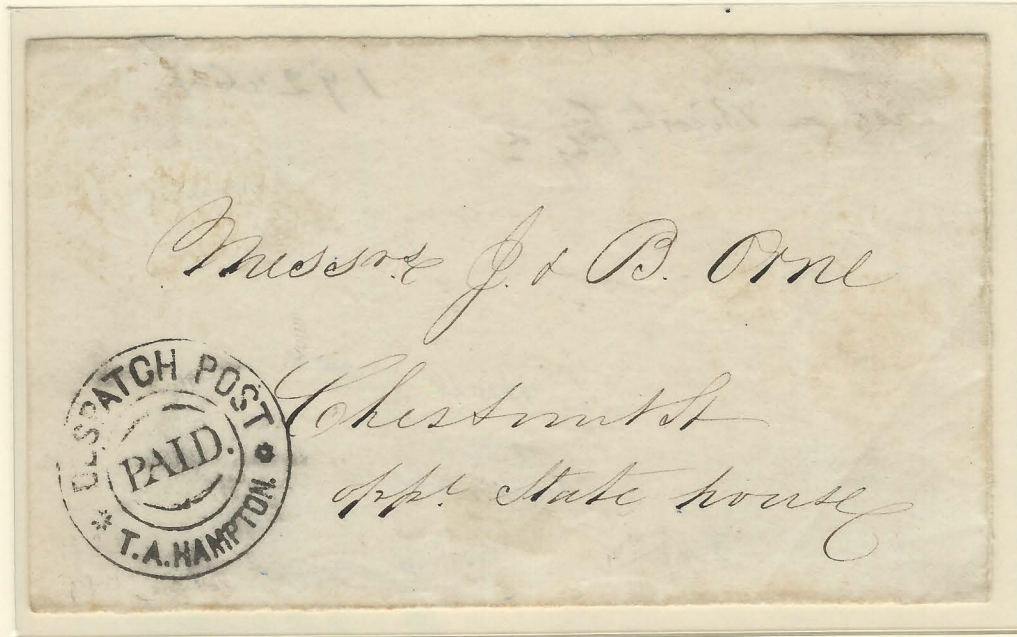 Messrs. J. & B. Orne
Chestnut St
opp. State house
DESPATCH POST
PAID.
* T.A. HAMPTON. *